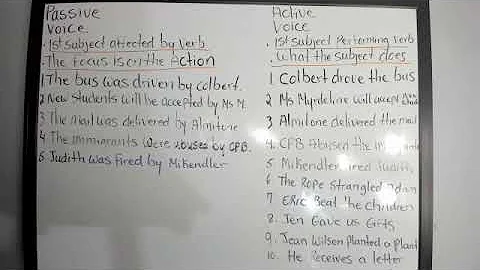 Passive
Voice
. 1st subject affected by verb
. The focus is on the Action
1 The bus was driven by colbert.
2 New students will be accepted by Ms M.
3 The mail was delivered by Almitone
4 The immigrants were abused by CPB.
5 Judith was fired by Mikendler
Active
Voice
. 1st subject Performing verb
. What the subject does
1 Colbert drove the bus
2 Ms Myrdeline will accept
3 Almitone delivered the mail
4. CPB Abused the
5 Mikendler fired Judith
6 The Rope strangled
7 ERIC Beat The children
8. Jen Gave us Gifts
9. Jean Wilson Planted a Plant
10. He Receives a letter